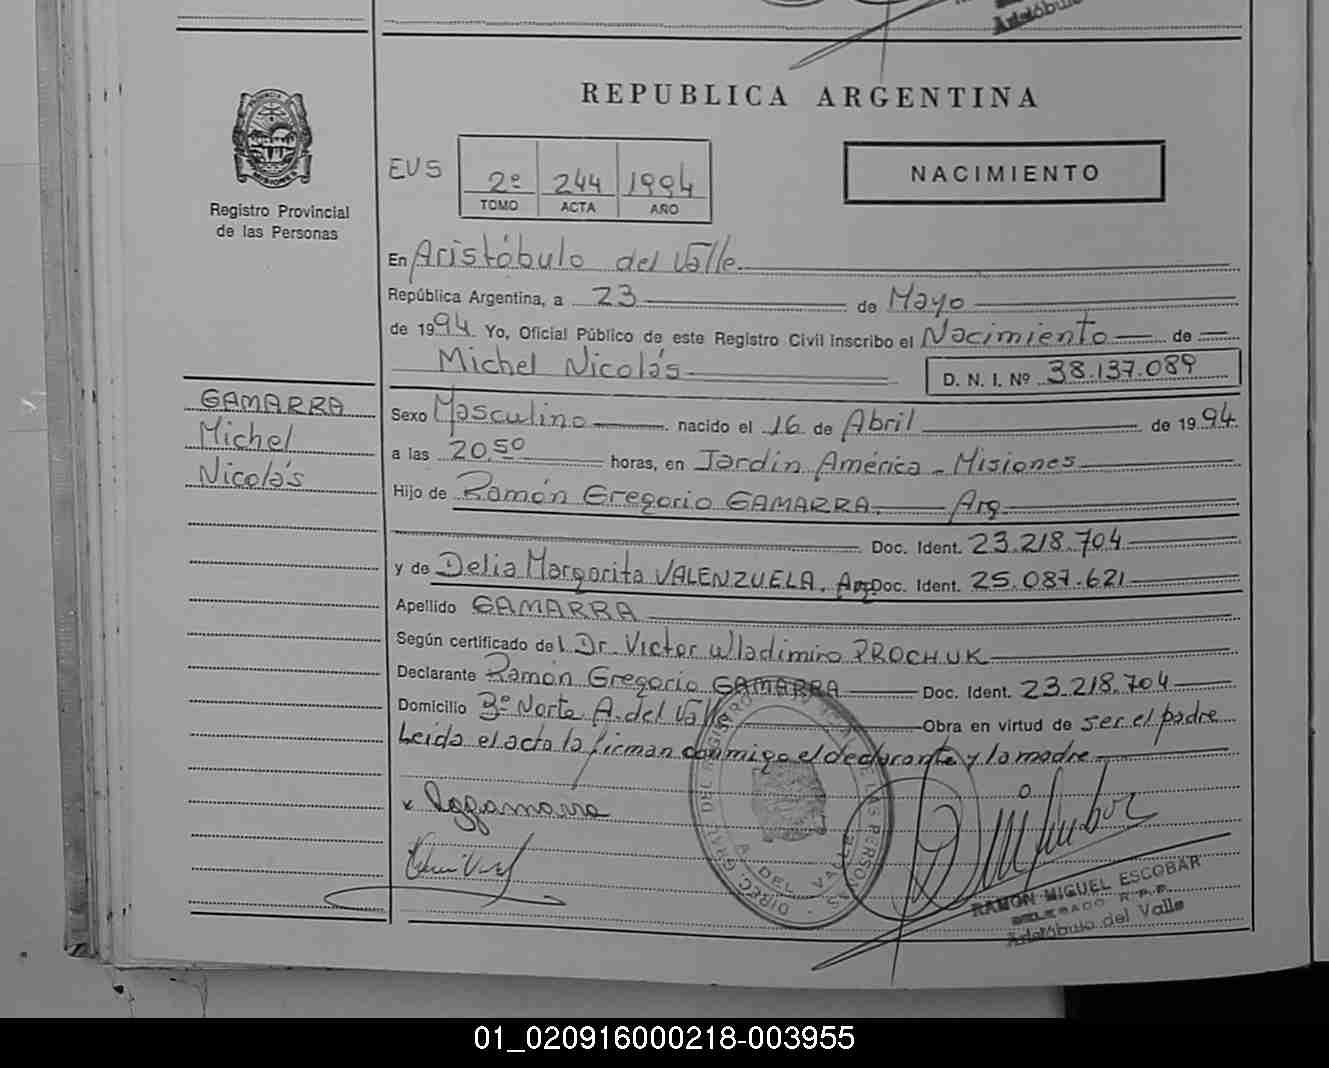 Aristóbulo
REPUBLICA ARGENTINA
Registro Provincial
de las Personas
EVS
2º 244 1994
TOMO ACTA AÑO
NACIMIENTO
En Aristóbulo del Valle
República Argentina, a 23 de Mayo
de 1994 Yo, Oficial Público de este Registro Civil inscribo el Nacimiento de
Michel Nicolás D. N. I. Nº 38.137.089
GAMARRA
Michel
Nicolás
Sexo Masculino nacido el 16 de Abril de 1994.
a las 20.50 horas, en Jardín América - Misiones
Hijo de Ramón Gregorio GAMARRA. Arg
Doc. Ident. 23.218.704
y de Delia Margarita VALENZUELA. Arg Doc. Ident. 25.087.621
Apellido GAMARRA
Según certificado del Dr. Victor Wladimiro PROCHUK
Declarante Ramón Gregorio GAMARRA Doc. Ident. 23.218.704
Domicilio 3º Norte A. del Valle Obra en virtud de ser el padre
Leida el acta la firman conmigo el declarante y la madre
DIREC. GRAL. DEL REGISTRO DE LAS PERSONAS
A. DEL VALLE
RAMON MIGUEL ESCOBAR
DELEGADO R.P.P.
Aristóbulo del Valle
01_020916000218-003955